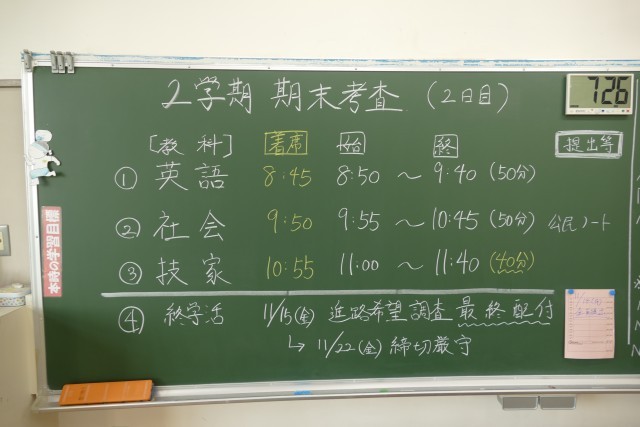 2学期 期末考査 (2日目)
726
[教科] 着席 始 終 提出等
① 英語 8:45 8:50 〜 9:40 (50分)
② 社会 9:50 9:55 〜 10:45 (50分) 公民ノート
③ 技家 10:55 11:00 〜 11:40 (40分)
④ 終学活 11/15(金) 進路希望調査 最終配付
↳ 11/22(金) 締切厳守
本時の学習目標